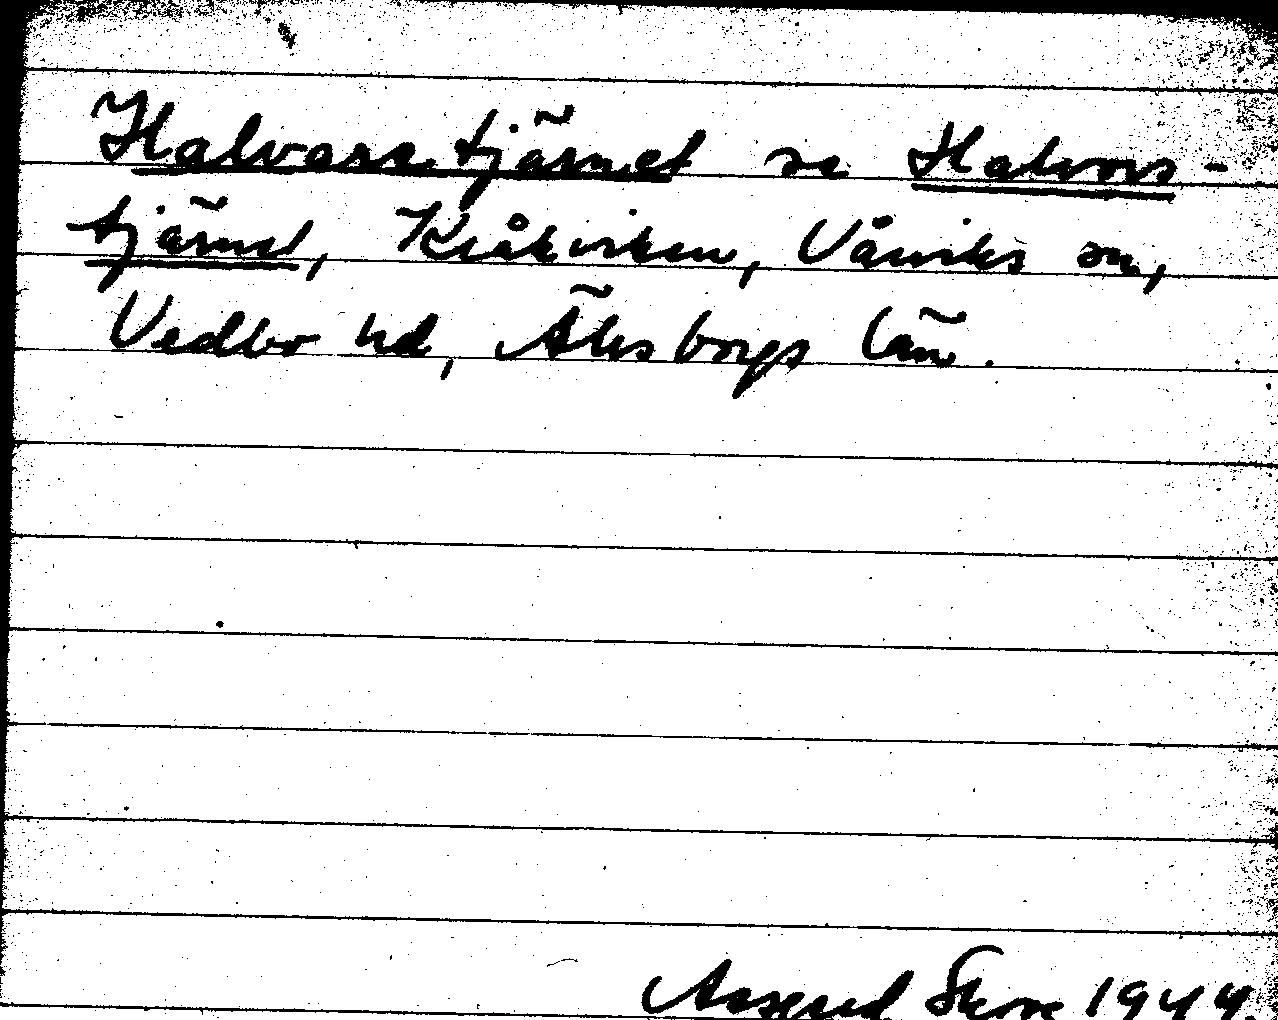 Halvarstjärnet se Halvors-
tjärnet, Kråkviken, Vårviks sn,
Vedbo hd, Älvsborgs län.
Asserud Skove 1944.